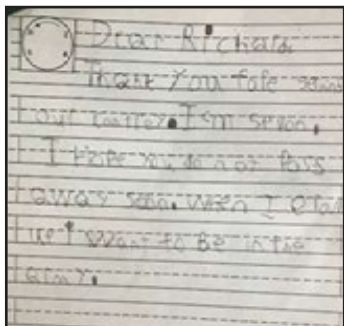 Dear Richard
Thank You fore
our contrey. I am sevon.
I Hope you do not Pass
away soon. When I
I Want to Be in the
army.